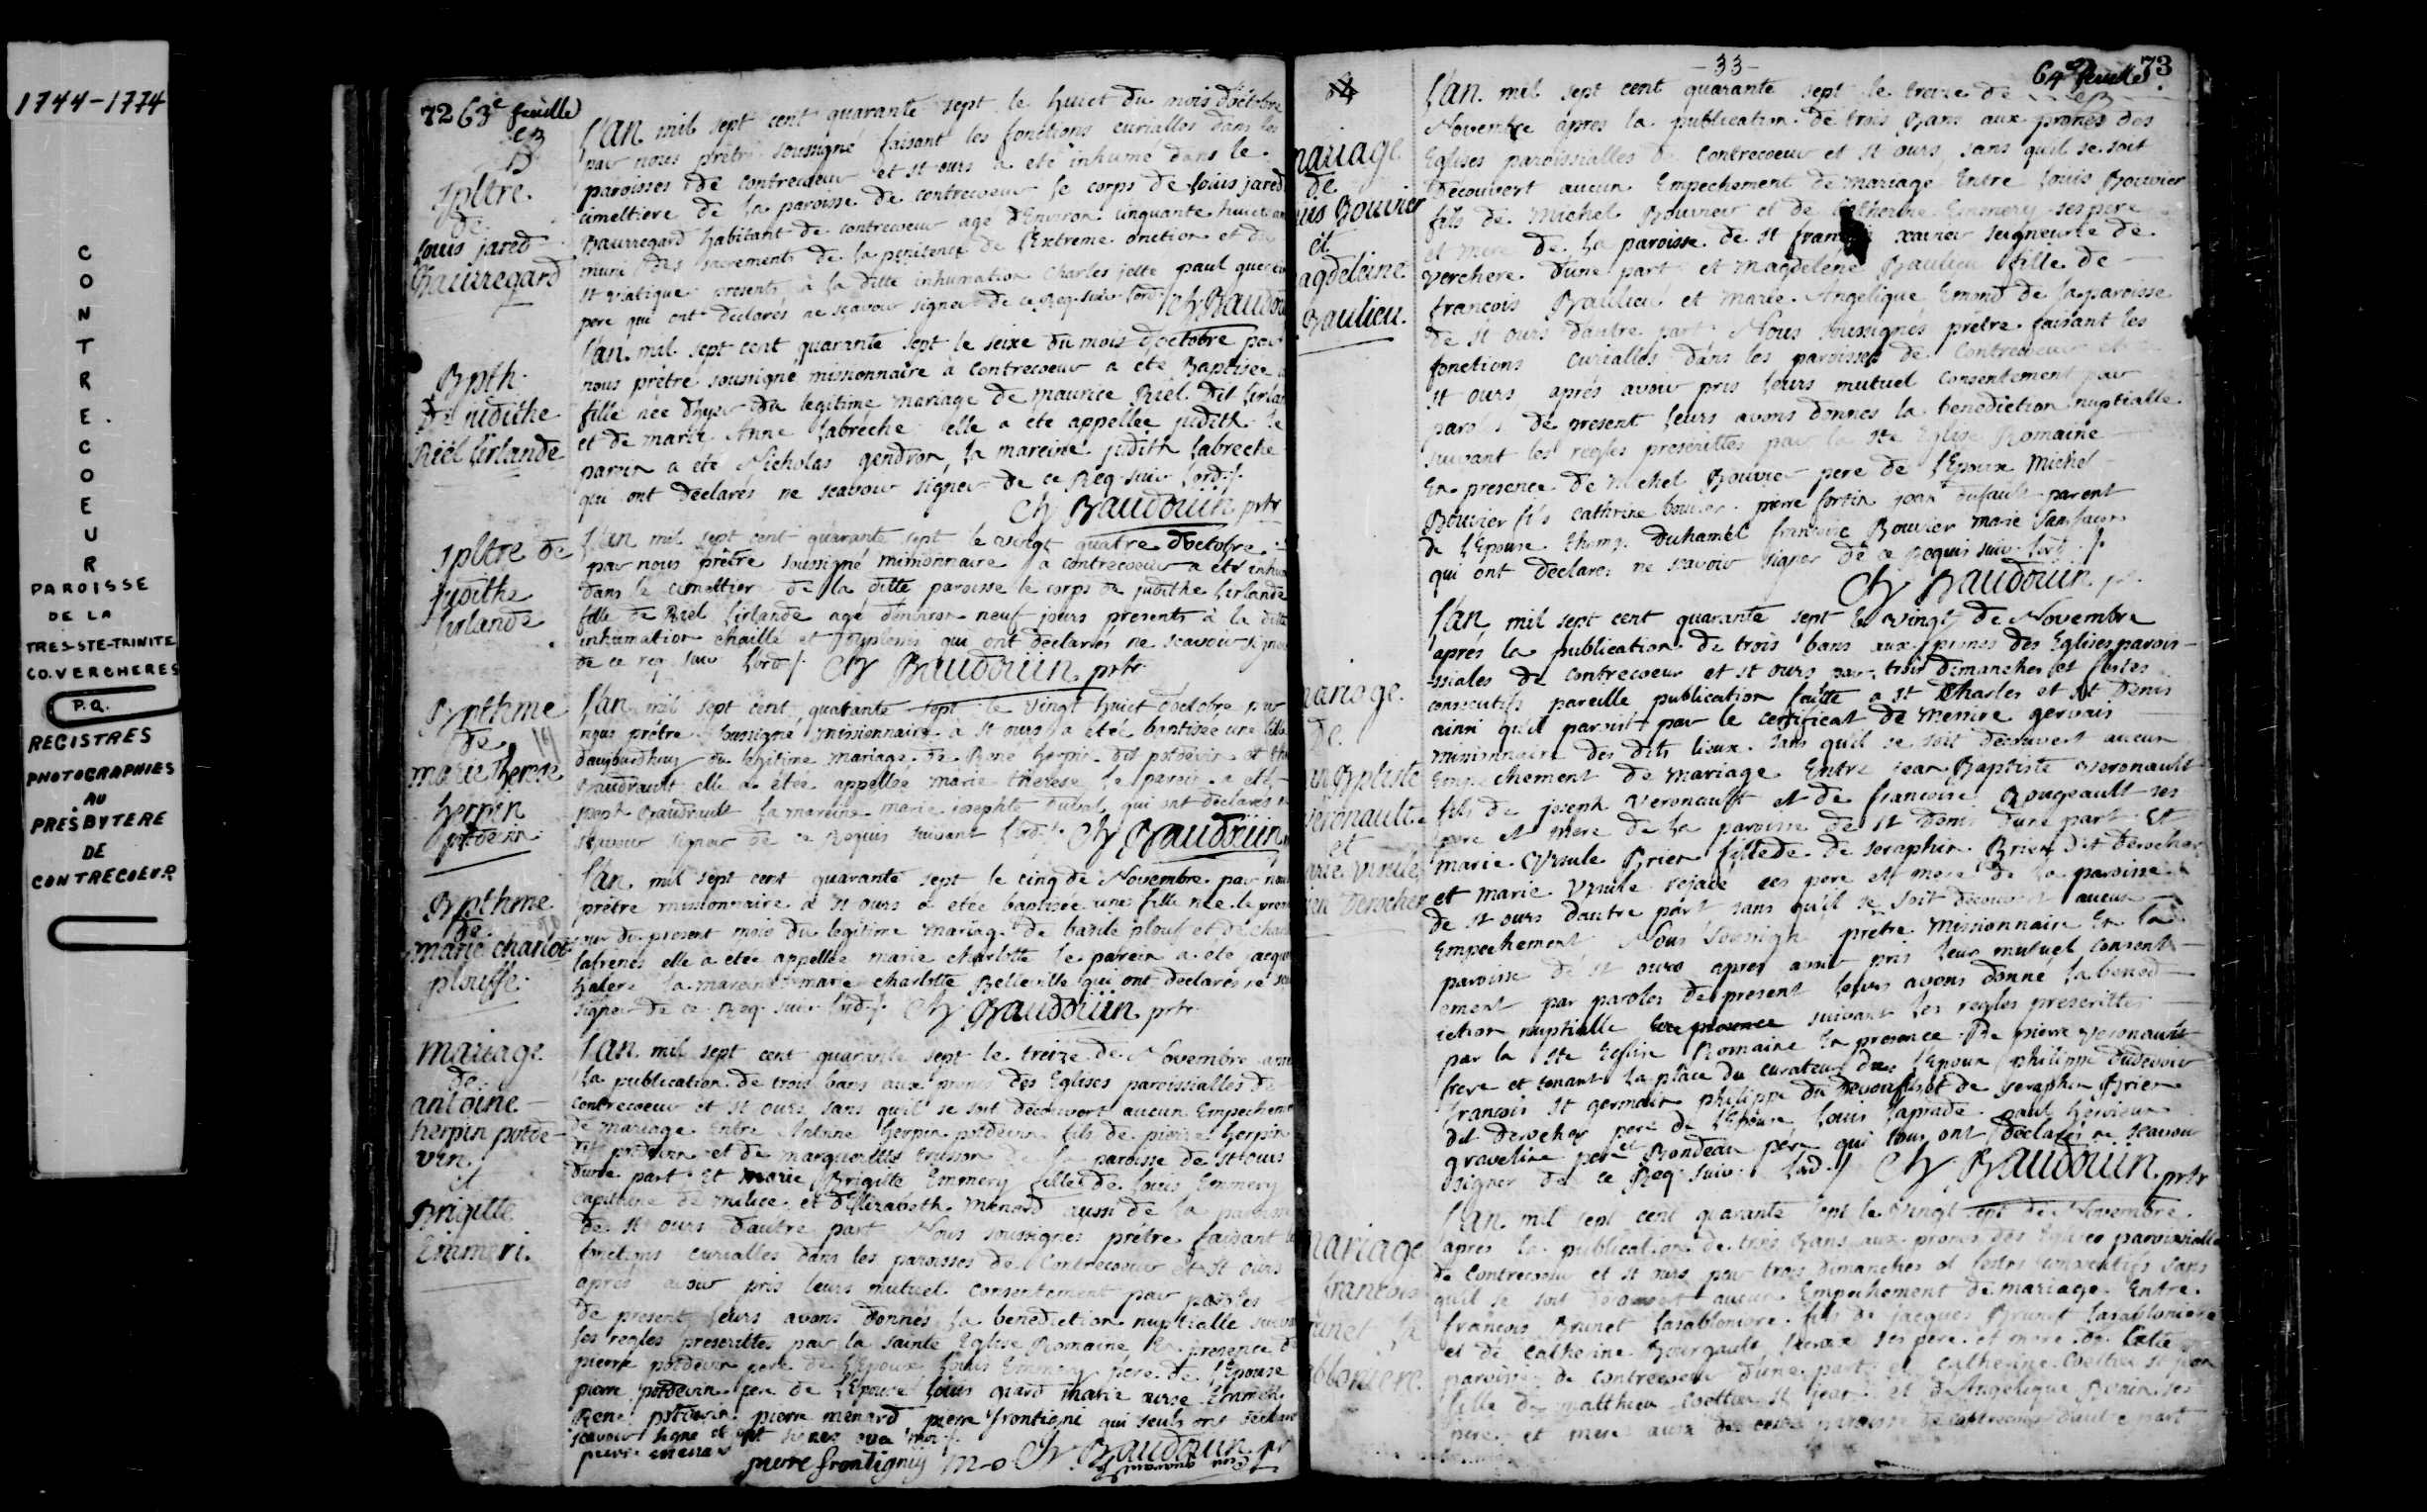 1744-1774
CONTRECOEUR
PAROISSE
DE LA
TRES-STE-TRINITE
CO. VERCHERES
P.Q.
REGISTRES
PHOTOGRAPHIES
AU
PRESBYTERE
DE
CONTRECOEUR
72 63e feuille
spltre
de
Louis jared
Baurregard
L'an mil sept cent quarante sept le huict du mois d'octobre
par nous prêtre soussigné faisant les fonctions curialles dans les
paroisses de contrecoeur et st ours a eté inhumé dans le
cimettiere de la paroisse de contrecoeur le corps de Louis jared
Baurregard habitant de contrecoeur agé d'Environ cinquante huict ans
muni des sacrements de la penitence de l'Extreme onction et du
st viatique presents à la ditte inhumation Charles jette paul
pere qui ont declarés ne scavoir signer de ce Req. suiv. lord. Ch Baudouin
Bpth
De judithe
Riel Lirlande
L'an mil sept cent quarante sept le seixe du mois d'octobre par
nous prêtre soussigné missionnaire à contrecoeur a eté Baptisee
fille née d'hyer du legitime mariage de maurice Riel dit Lirlan
et de marie Anne Labreche elle a eté appellee judith le
parein a eté Nicholas gendron, la mareine judith Labreche
qui ont declarés ne scavoir signer de ce Req. suiv. lord.
Ch Baudouin prtr
spltre de
judithe
lirlande
L'an mil sept cent quarante sept le vingt quatre d'octobre
par nous prêtre soussigné missionnaire a contrecoeur a eté inhu
dans le cimettier de la ditte paroisse le corps de judithe Lirlande
fille de Riel Lirlande agé d'environ neuf jours presents à la ditte
inhumation chaillé et qui ont declarés ne scavoir signer
de ce req. suiv. lord. Ch Baudouin prtr
Bpthme
de
marie therese
herpin
potdevin
L'an mil sept cent quarante sept le vingt huict d'octobre par
nous prêtre soussigné missionnaire a st ours a étée baptisée une fille
d'aujourdhuy du legitime mariage de René herpin dit potdevin et
Gaudrault elle a étée appellee marie therese le parein a eté
joseph Gaudrault la mareine marie josephte qui ont declarés
scavoir signer de ce Requis suivant lord. Ch Baudouin
Bpthme
de
marie charlot
plouffe
L'an mil sept cent quarante sept le cinq de Novembre par nous
prêtre missionnaire a st ours a étée baptisée une fille née le
jour du present mois du legitime mariag. de basile plouf et de
elle a étée appellée marie charlotte le parein a eté
la mareine marie charlotte Belleville qui ont declarés ne
signer de ce Req. suiv. lord. Ch Baudouin prtr
mariage
de
antoine
herpin potde-
vin
et
Brigitte
Emmeri
L'an mil sept cent quarante sept le treize de Novembre
la publication de trois bans aux prones des Eglises paroissialles de
contrecoeur et st ours sans qu'il se soit decouvert aucun Empechem
de mariage Entre Antoine herpin potdevin fils de pierre herpin
dit potdevin et de marguerite de la paroisse de st ours
d'une part Et marie Brigitte Emmery fille de Louis Emmery
capitaine de milice et d'Elizabeth menard aussi de la paroisse
de st ours d'autre part Nous soussignés prêtre faisant
fonctions curialles dans les paroisses de Contrecoeur et st ours
apres avoir pris leurs mutuel consentement par paroles
de present leurs avons donnés la benediction nuptialle
les regles prescrittes par la sainte Eglise Romaine En presence de
pierre potdevin pere de l'Epoux Louis Emmery pere de l'Epouse
pierre potdevin de l'Epoux Louis marie Emmeri
René potdevin pierre menard pierre frontigni qui seuls ont declaré
scavoir signé et ont signés avec moi
pierre menard pierre frontigny Ch Baudouin pr
-33-
64e feuille 73
mariage
de
uis Bouvier
et
agdeleine
Baulieu
L'an mil sept cent quarante sept le treize de
Novembre après la publication de trois Bans aux prones des
Eglises paroissialles de Contrecoeur et st ours sans qu'il se soit
decouvert aucun Empechement de mariage Entre Louis Bouvier
fils de Michel Bouvier et de Catherine Emmery ses pere
et mere de la paroisse de st francois xavier seigneurie de
vercheres d'une part et magdelene Baulieu fille de
francois Baulieu et marie Angelique Emond de la paroisse
de st ours d'autre part Nous soussignés prêtre faisant les
fonctions curialles dans les paroisses de Contrecoeur et
st ours après avoir pris leurs mutuel consentement par
parol s de present leurs avons donnes la benediction nuptialle
suivant les regles prescrittes par la ste Eglise Romaine
En presence de michel Bouvier pere de l'Epoux Michel
Bouvier fils cathrine bouvier pierre fortin jean dufault parent
de l'Epouse thomas Duhamel francoise Bouvier marie
qui ont declarés ne scavoir signer de ce Requis suiv. lord.
Ch Baudouin
mariage
de
an Bptiste
veronault
et
arie ursule
Derocher
L'an mil sept cent quarante sept le vingt de Novembre
après la publication de trois bans aux prones des Eglises parois-
-ssiales de contrecoeur et st ours par trois dimanches et festes
consecutifs pareille publication faitte a st Charles et st Denis
ainsi qu'il paroist par le certificat de messire gervais
missionnaire des dits lieux sans qu'il se soit decouvert aucun
Empechement de mariage Entre jean Baptiste veronault
fils de joseph veronault et de francoise Rougeault ses
pere et mere de la paroisse de st denis d'une part Et
marie Ursule Brien fille de seraphin Brien dit Derocher
et marie Ursule ses pere et mere de la paroisse
de st ours d'autre part sans qu'il se soit decouvert aucun
Empechement Nous Soussigné prêtre missionnaire En la
paroisse de st ours apres avoir pris leur mutuel consent
ement par paroles de present leurs avons donné la bened
iction nuptialle suivant les regles prescrittes
par la ste Eglise Romaine En presence De pierre veronault
frere et tenant la place du curateur de l'Epoux philippe dudevoir
francois st germain philippe du devoir fils et de seraphin Brien
dit derocher pere de l'Epouse Louis Laprade paul hervieux
graveline pere et Rondeau pere qui tous ont declarés ne scavoir
signer de ce Req. suiv. lord. Ch Baudouin prtr
mariage
francois
unet la
ablonniere
L'an mil sept cent quarante sept le vingt sept de Novembre
apres la publication de trois Bans aux prones des Eglises paroissialles
de Contrecoeur et st ours par trois dimanches et festes consecutifs sans
qu'il se soit decouvert aucun Empechement de mariage Entre
francois Brunet Lasabloniere fils de jacques Brunet Lasabloniere
et de Catherine Bourgault ses pere et mere de cette
paroisse de contrecoeur d'une part et Catherine st jean
fille de matthieu st jean et d'Angelique ses
pere et mere aussi de cette paroisse de contrecoeur d'autre part